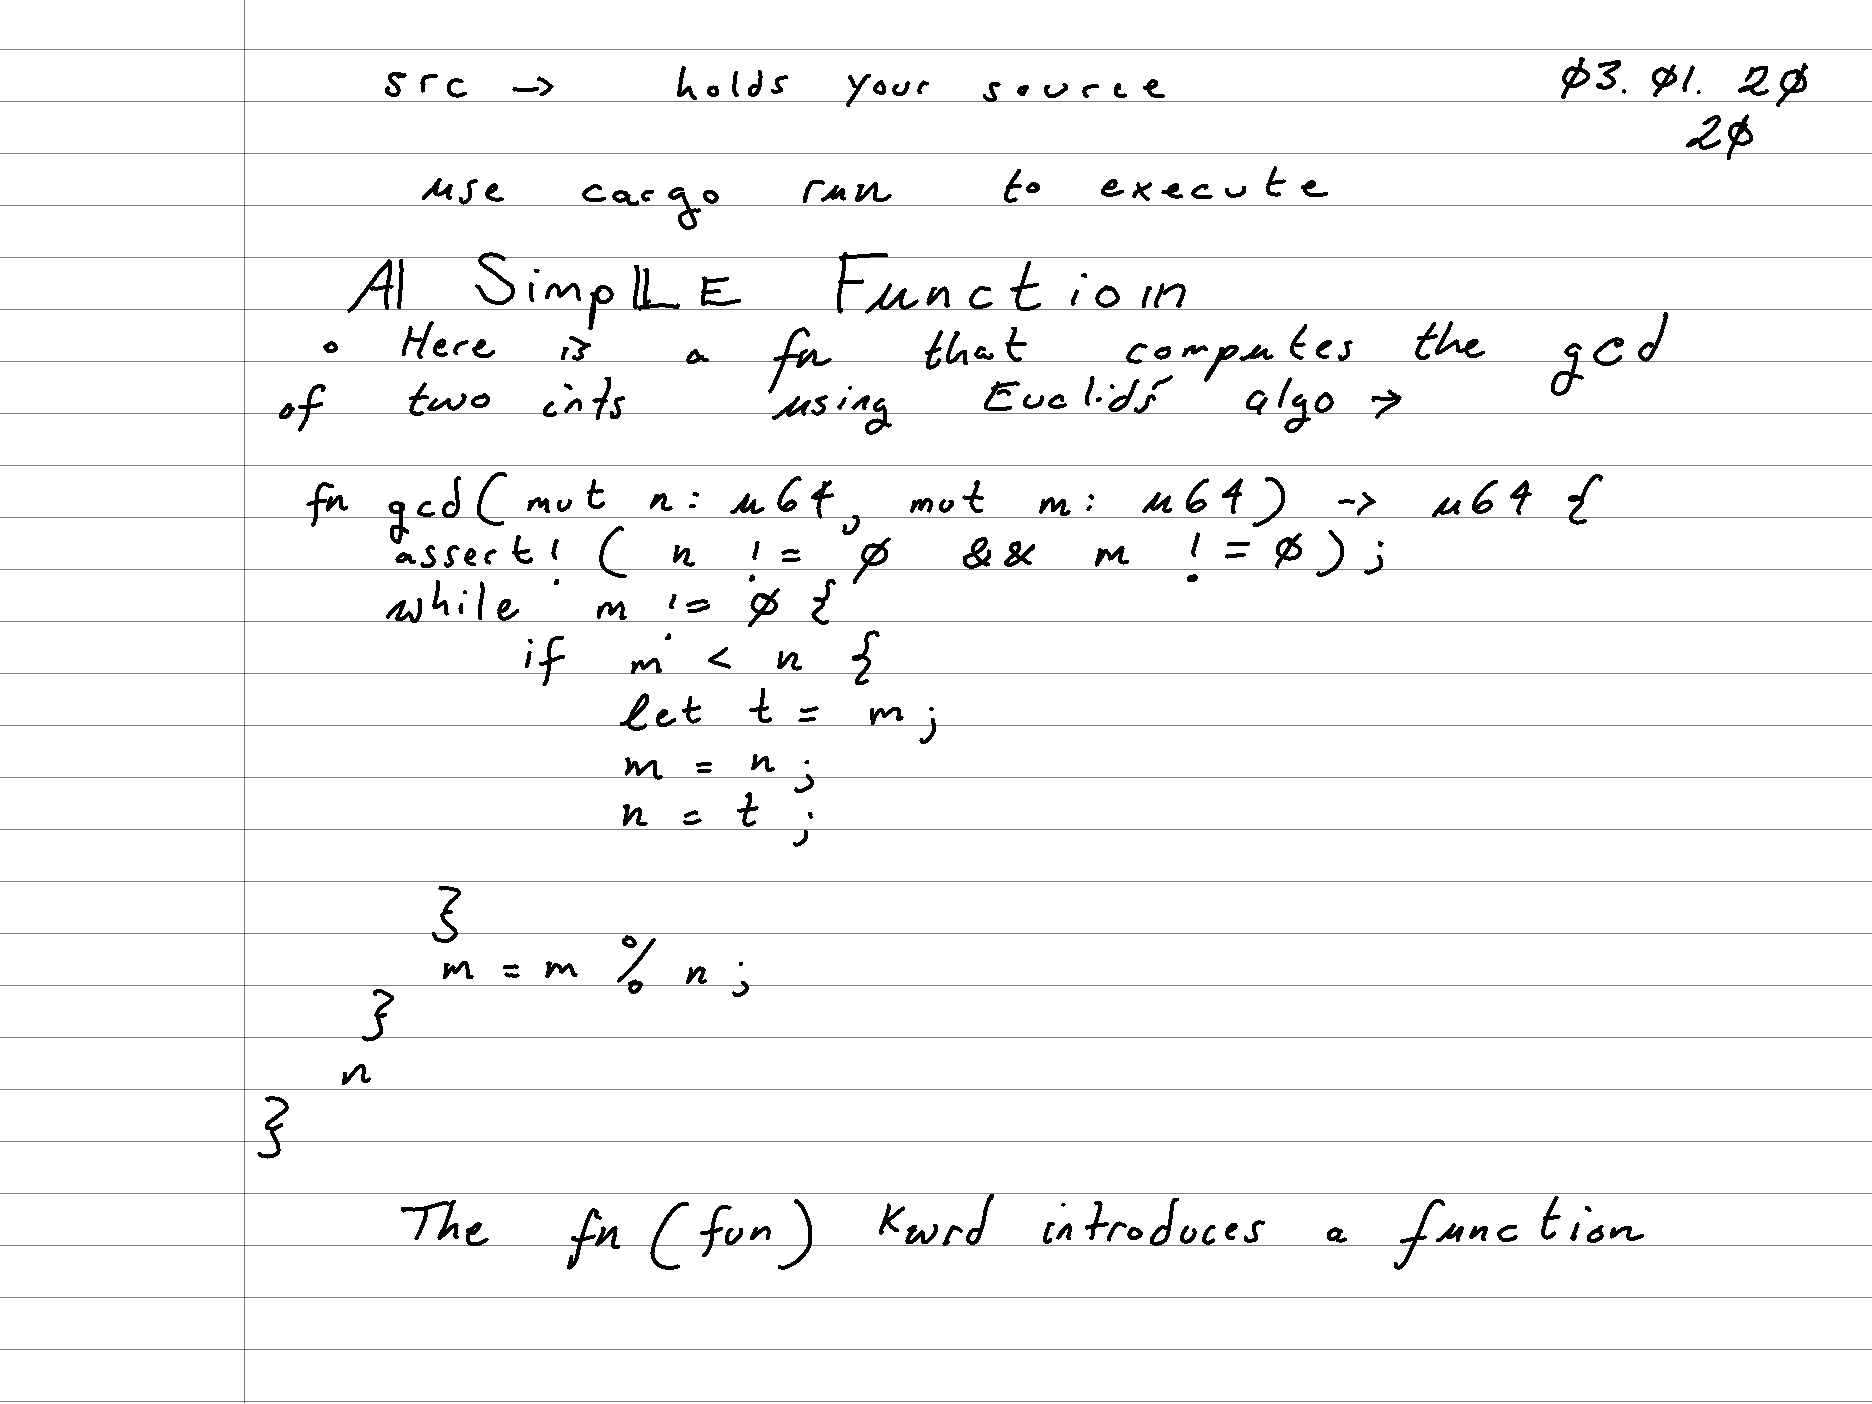 src → holds your source 03.01.20
20
use cargo run to execute
A SimpLE Function
• Here is a fn that computes the gcd
of two ints using Euclid's algo →
fn gcd(mut n: u64, mut m: u64) -> u64 {
assert! ( n != 0 && m != 0 );
while m != 0 {
if m < n {
let t = m;
m = n;
n = t;
}
m = m % n;
}
n
}
The fn (fun) kwrd introduces a function